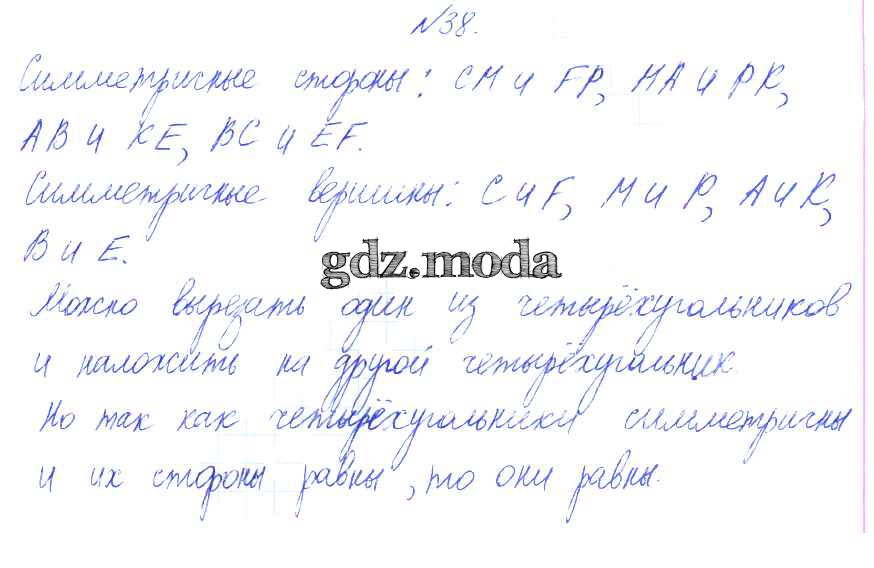 №38.
Симметричные стороны: СМ и FP, МА и РК,
АВ и КЕ, ВС и EF.
Симметричные вершины: С и F, М и Р, А и К,
В и Е.
gdz.moda
Можно вырезать один из четырёхугольников
и наложить на другой четырёхугольник.
Но так как четырёхугольники симметричны
и их стороны равны, то они равны.